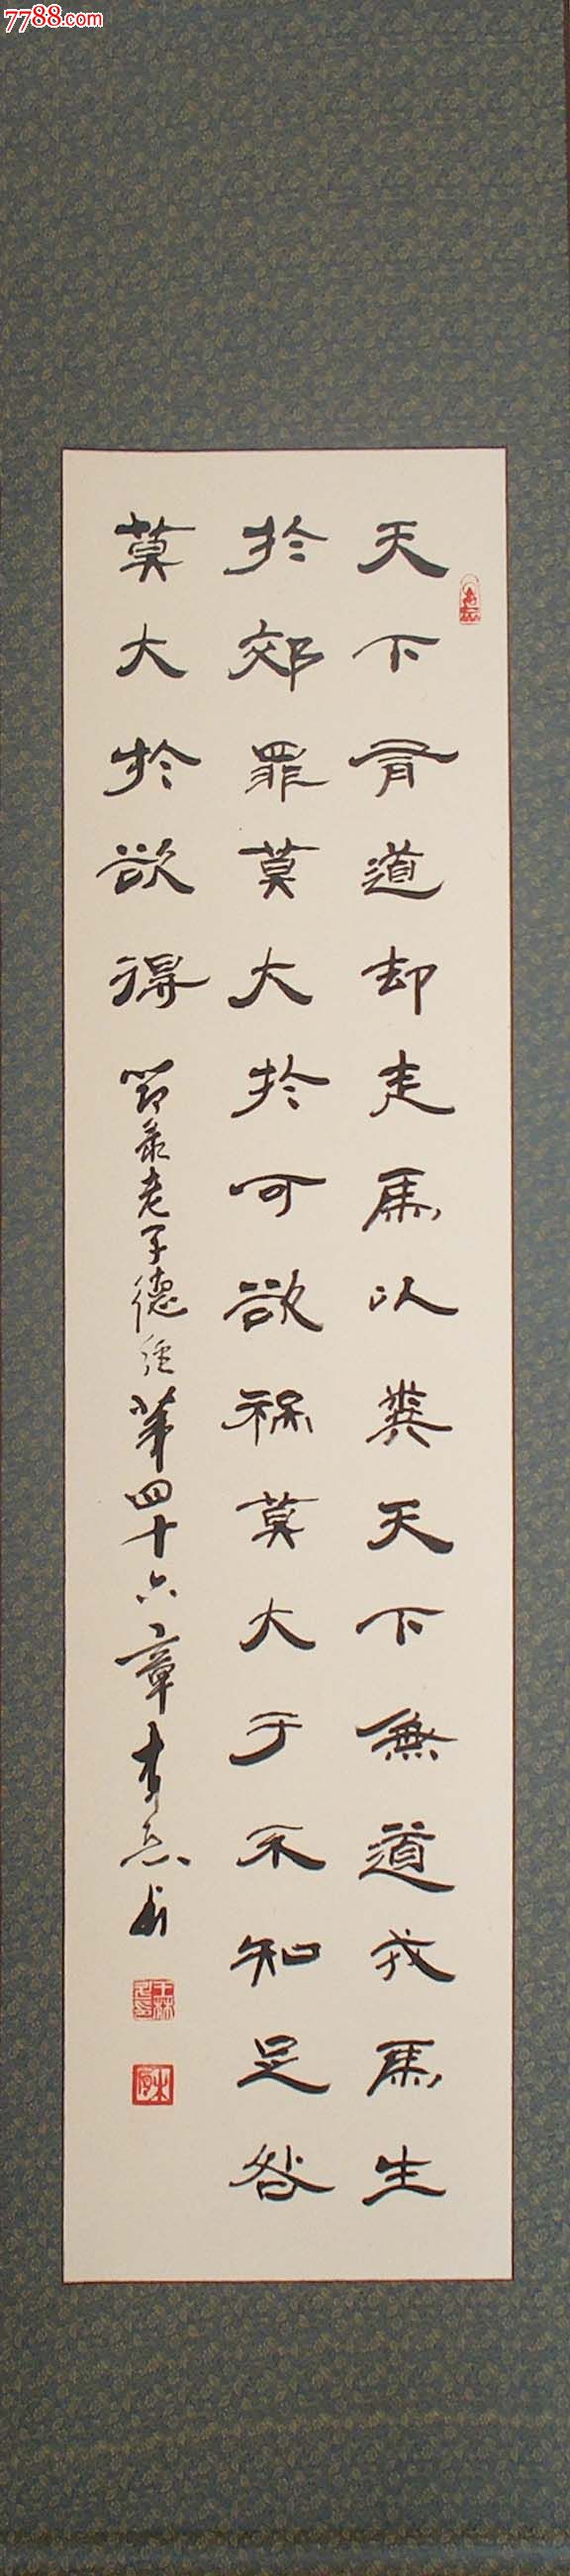 7788.com
天下有道却走馬以糞天下無道戎馬生
於郊罪莫大於可欲禍莫大于不知足咎
莫大於欲得 節录老子德经第四十六章